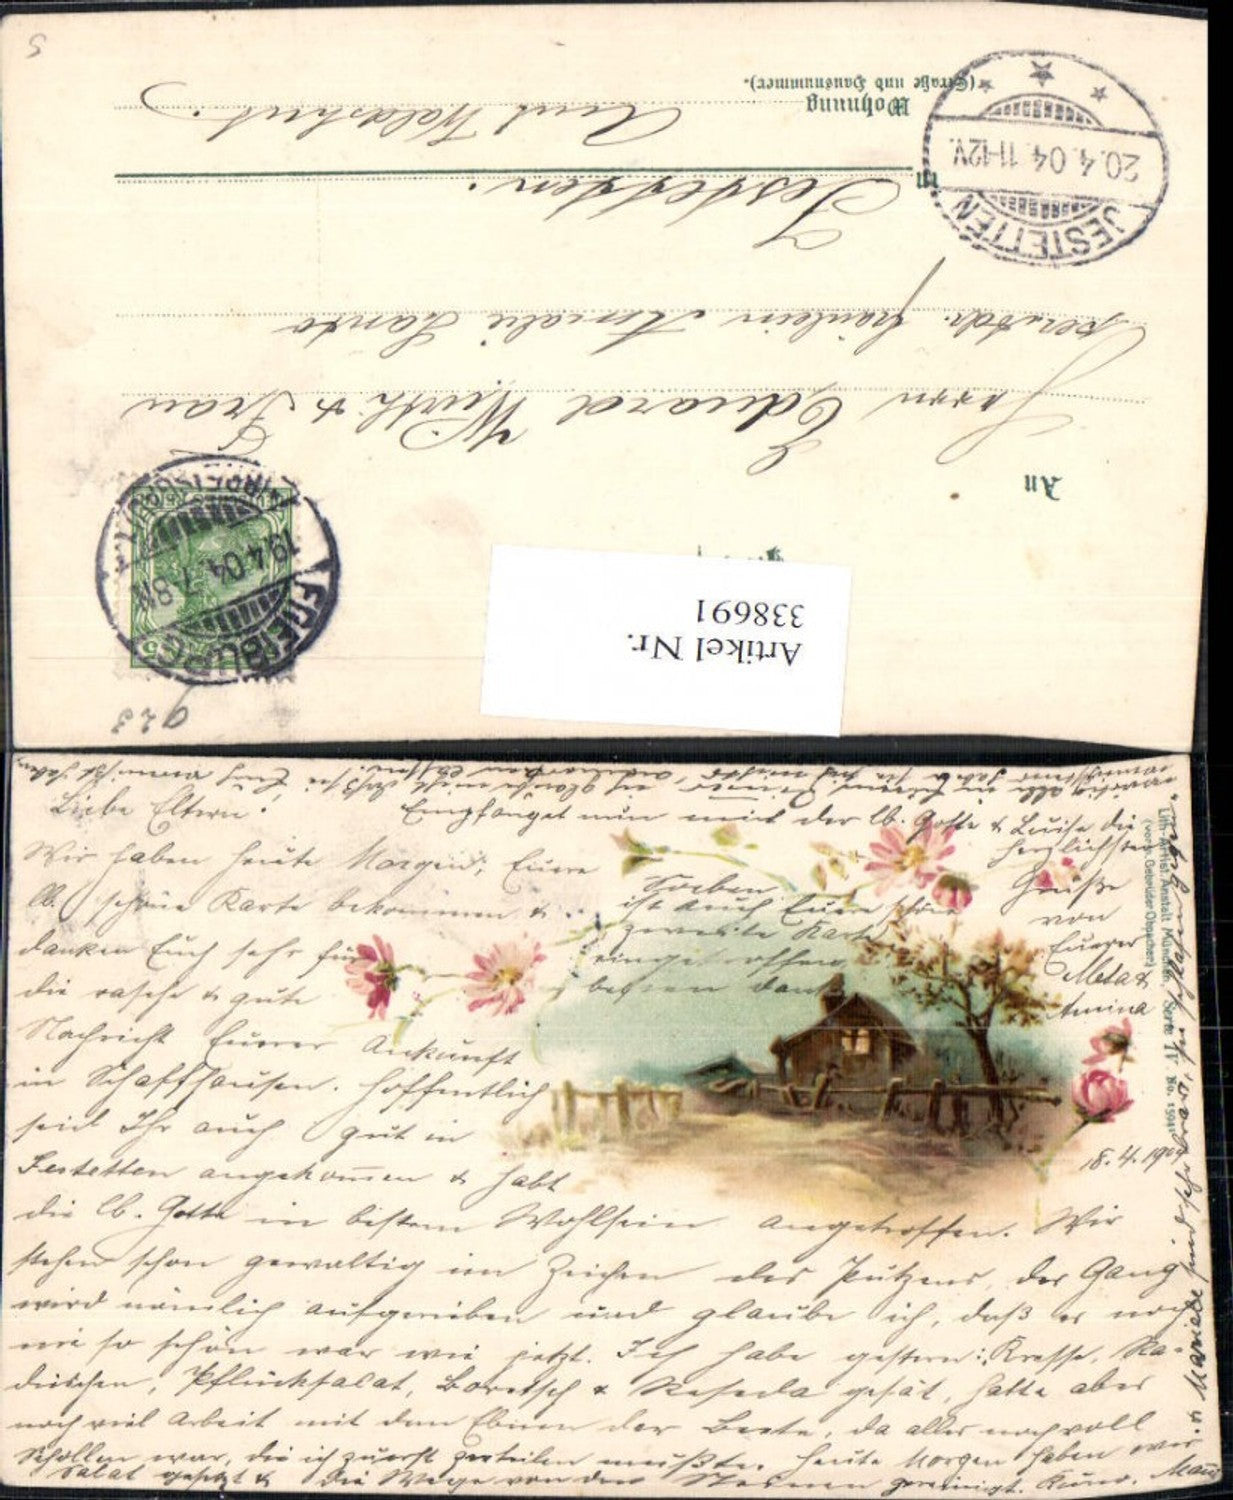 An
Herrn Eduard Wirth & Frau
per adr. Fräulein Amalie
in Jestetten.
Wohnung
(Straße und Hausnummer).
Amt Waldshut.
JESTETTEN
20.4.04. 11-12V.
FREIBURG
19.4.04. 7-8N
5
Artikel Nr.
338691
18.4.1904
Liebe Eltern!
Wir haben heute Morgen, Euere
lb. schöne Karte bekommen &
danken Euch sehr für
die rasche & gute
Nachricht Euerer Ankunft
in Schaffhausen. Hoffentlich
seid Ihr auch gut in
Jestetten angekommen & habt
die lb. Gotte in bestem Wohlsein angetroffen. Wir
stehen schon gewaltig im Zeichen des Putzens, der Gang
wird nämlich aufgerieben und glaube ich, daß er noch
nie so schön war wie jetzt. Ich habe gestern: Kresse, Ra-
dieschen, Pflücksalat, Boretsch & Reseda gesät, hatte aber
noch viel Arbeit mit dem Ebnen der Beete, da alles noch voll
Schollen war, die ich zuerst zerteilen mußte. Heute Morgen haben wir
Salat gesetzt & die Wege von den Steinen gereinigt.
Soeben
ist auch Euere schöne
zweite Karte
eingetroffen
besten Dank
Empfanget nun mit der lb. Gotte & Luise die
herzlichsten
Grüße
von
Euerer
Meta &
Amina
Lith.-Artist. Anstalt München
(vorm. Gebrüder Obpacher).
Serie No. 15941